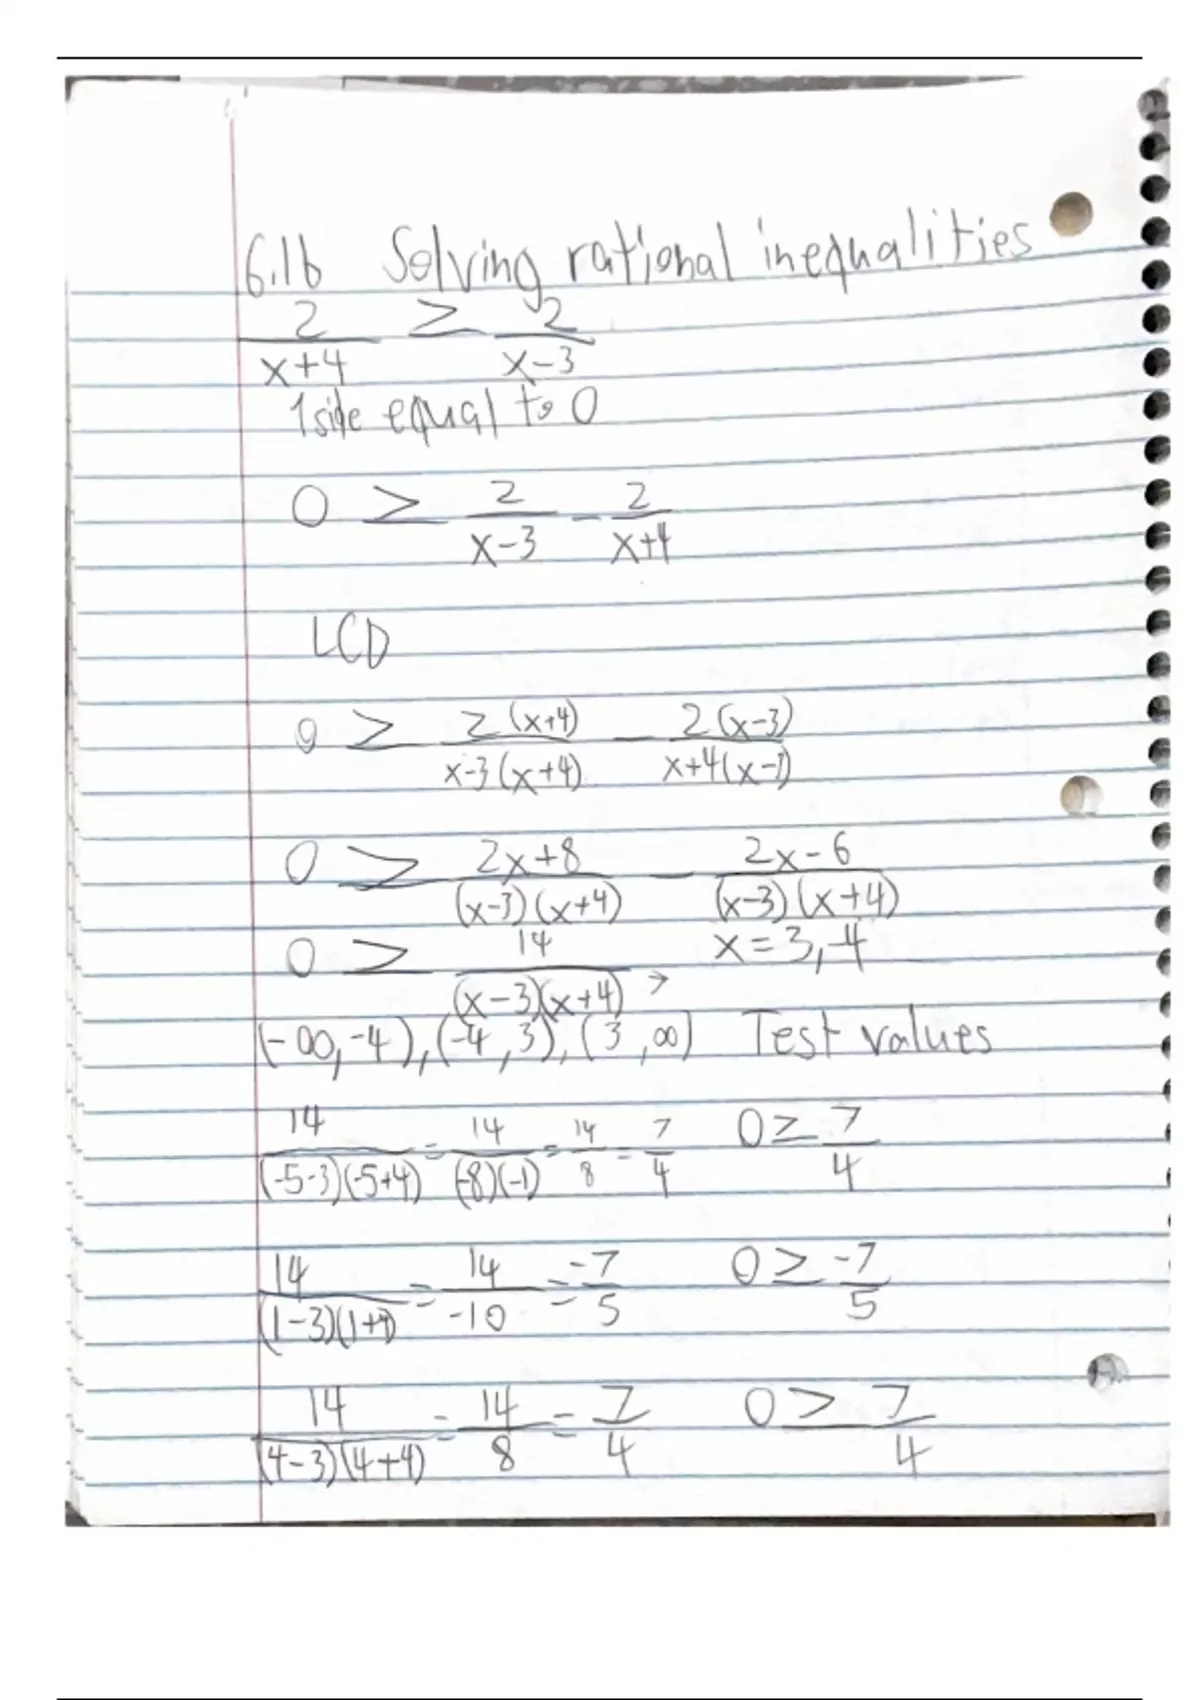 6.1b Solving rational inequalities
2/(x+4) ≥ 2/(x-3)
1 side equal to 0
0 ≥ 2/(x-3) - 2/(x+4)
LCD
0 ≥ 2(x+4)/x-3(x+4) - 2(x-3)/x+4(x-3)
0 ≥ 2x+8/(x-3)(x+4) - 2x-6/(x-3)(x+4)
0 ≥ 14/(x-3)(x+4) → x=3,-4
(-∞,-4),(-4,3),(3,∞) Test values
14/(-5-3)(-5+4) = 14/(-8)(-1) = 14/8 = 7/4 0≥ 7/4
14/(1-3)(1+4) = 14/-10 = -7/5 0≥ -7/5
14/(4-3)(4+4) = 14/8 = 7/4 0≥ 7/4